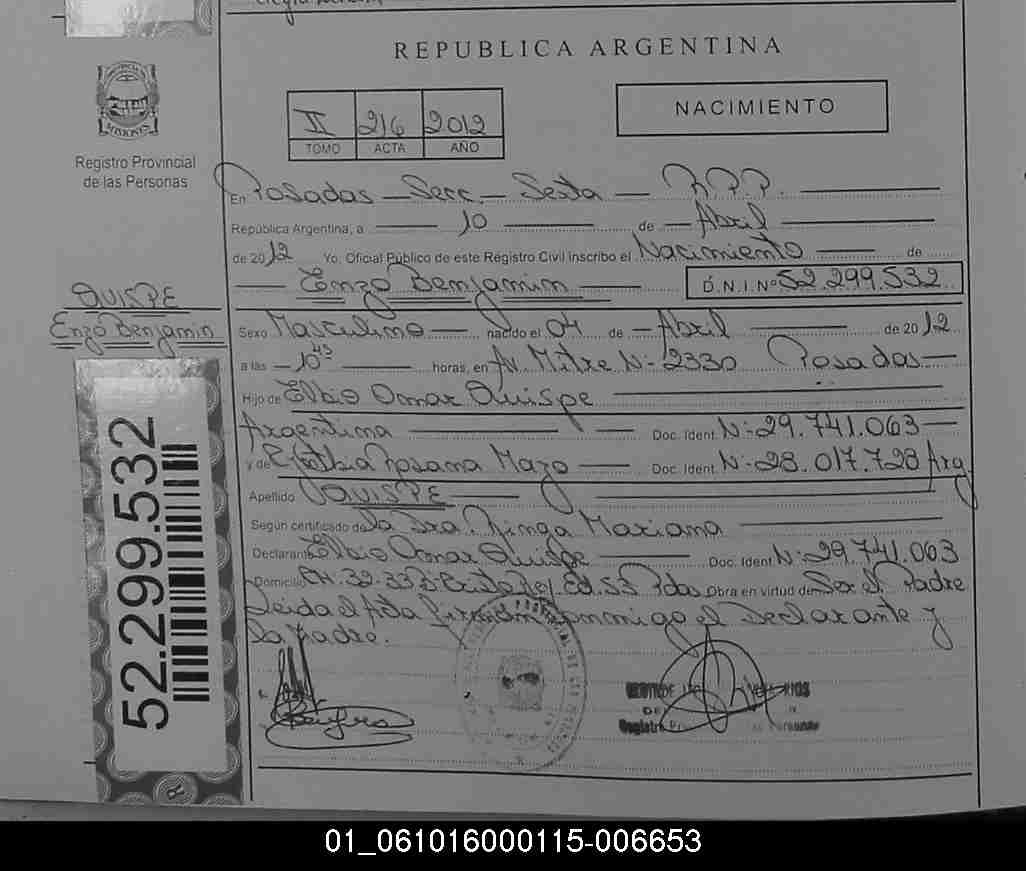 REPUBLICA ARGENTINA
PROVINCIA DE MISIONES
Registro Provincial
de las Personas
II 216 2012
TOMO ACTA AÑO
NACIMIENTO
En Posadas - Secc. - Sexta - R.P.P.
República Argentina, a 10 de - Abril
de 2012 Yo, Oficial Público de este Registro Civil inscribo el Nacimiento de
Enzo Benjamin D.N.I. Nº 52.299.532
QUISPE
Enzo Benjamin
Sexo Masculino nacido el 04 de - Abril de 2012
a las - 10 45 horas, en Av. Mitre N- 2330 Posadas -
Hijo de Elbio Omar Quispe
Argentina Doc. Ident. N:- 29.741.063 -
y de Rosana Mazo Doc. Ident. N:- 28.017.728 Arg.
Apellido QUISPE
Según certificado de La Dra. Mariana
Declarante Elbio Omar Quispe Doc. Ident. N:- 29.741.063
Domicilio CH. 32-33 Ed. 53 Pdas Obra en virtud de Ser el Padre
Leida el Acta firman conmigo el Declarante y
La Madre.
52.299.532
Registro
01_061016000115-006653